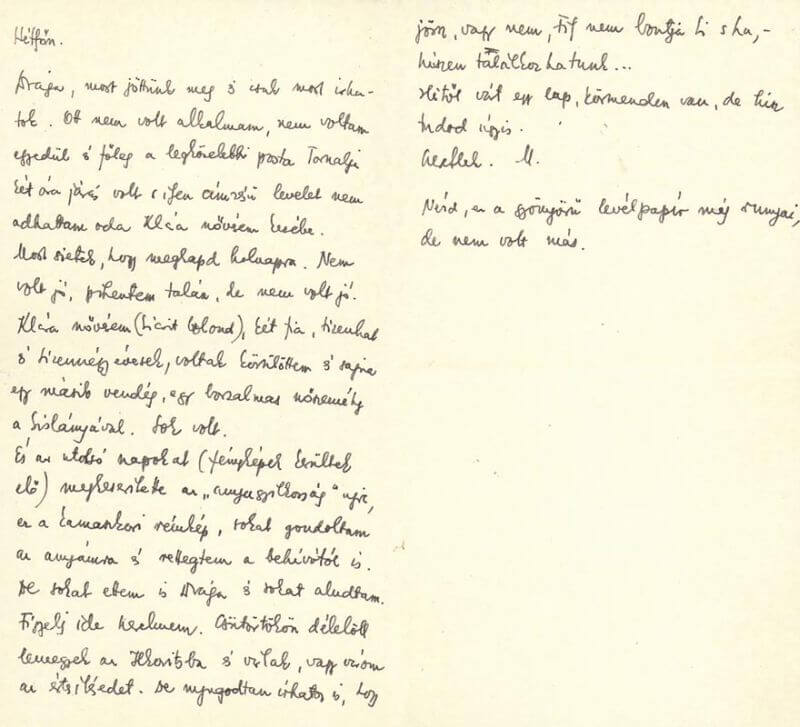 Hétfőn.
Drága, most jöttünk meg s csak most irha-
tok. Ott nem volt alkalmam, nem voltam
egyedül s főleg a legközelebbi posta Tornalja
két óra járás volt s ilyen címzésű levelet nem
adhattam oda Klára nővérem kezébe.
Most sietek, hogy megkapd holnapra. Nem
volt jó, pihentem talán, de nem volt jó.
Klára nővérem (kicsit bolond), két fia, tizenhat
s tizennégy évesek, voltak körülöttem s sajna
egy másik vendég, egy borzalmas nőszemély
a kislányával. Sok volt.
És az utolsó napokat (fényképek kerültek
elő) megkeserítette az „anyagyilkosság" ujra,
ez a kamaszkori rémkép, sokat gondoltam
az anyámra s rettegtem a behívótól is.
De sokat ettem is Drága s sokat aludtam.
Figyelj ide kérlek. Csütörtökön délelőtt
lemegyek az Itkovitsba s várlak, vagy várom
az értesítésedet. De nyugodtan írhatsz is, hogy
jössz, vagy nem, Fif nem bontja ki s ha,-
hiszen találkozhatunk...
Hitől vár egy lap, Körmenden van, de hisz
tudod úgyis.
M.
Nézd, ez a gyönyörű levélpapír még runyai,
de nem volt más.